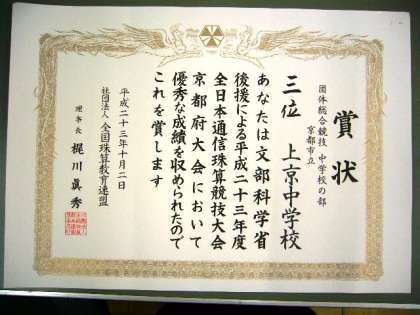 賞状
団体総合競技 中学校の部
京都市立
三位 上京中学校
あなたは文部科学省
後援による平成二十三年度
全日本通信珠算競技大会
京都府大会において
優秀な成績を収められたので
これを賞します
平成二十三年十月二日
社団法人 全国珠算教育連盟
理事長 梶川眞秀